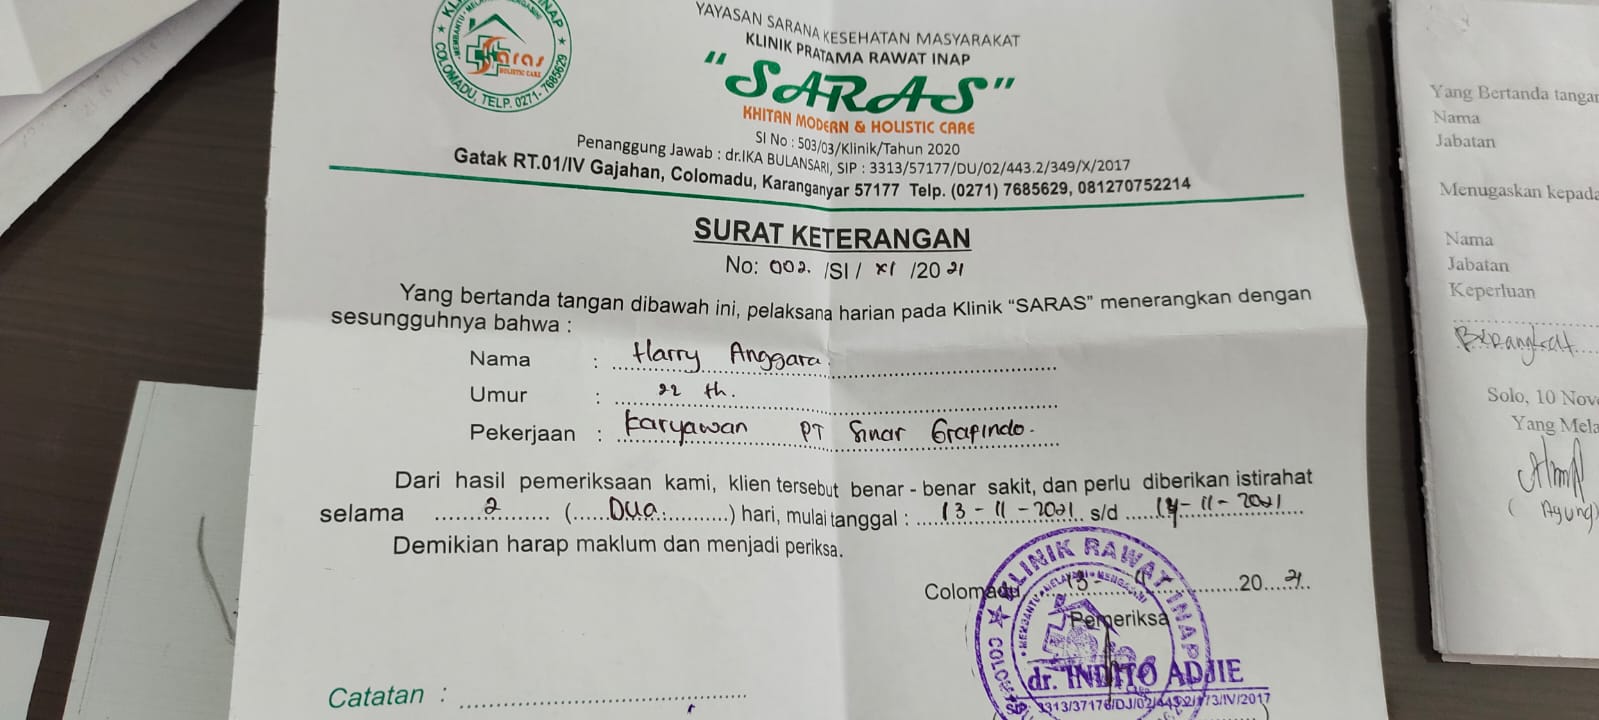 KL INAP
MEMBANTU - MELA MENGASIHI
Saras
HOLISTIC CARE
★ COLOMADU, TELP. 0271- 7685629 ★
YAYASAN SARANA KESEHATAN MASYARAKAT
KLINIK PRATAMA RAWAT INAP
"SARAS"
KHITAN MODERN & HOLISTIC CARE
SI No : 503/03/Klinik/Tahun 2020
Penanggung Jawab : dr.IKA BULANSARI, SIP : 3313/57177/DU/02/443.2/349/X/2017
Gatak RT.01/IV Gajahan, Colomadu, Karanganyar 57177 Telp. (0271) 7685629, 081270752214
SURAT KETERANGAN
No: 002. /SI/ XI /20 21
Yang bertanda tangan dibawah ini, pelaksana harian pada Klinik "SARAS" menerangkan dengan
sesungguhnya bahwa :
Nama : Harry Anggara
Umur : 22 th.
Pekerjaan : Karyawan PT Sinar Grapindo.
Dari hasil pemeriksaan kami, klien tersebut benar - benar sakit, dan perlu diberikan istirahat
selama 2 (Dua) hari, mulai tanggal : 13 - 11 - 2021 s/d 14 - 11 - 2021
Demikian harap maklum dan menjadi periksa.
Colomadu, 13 - 11 20 21
Pemeriksa
KLINIK RAWAT INAP
dr. INDITO ADJIE
Catatan :
Yang Bertanda tangan
Nama
Jabatan
Menugaskan kepada
Nama
Jabatan
Keperluan
Berangkat
Solo, 10 Nove
Yang Mela
( Agung )